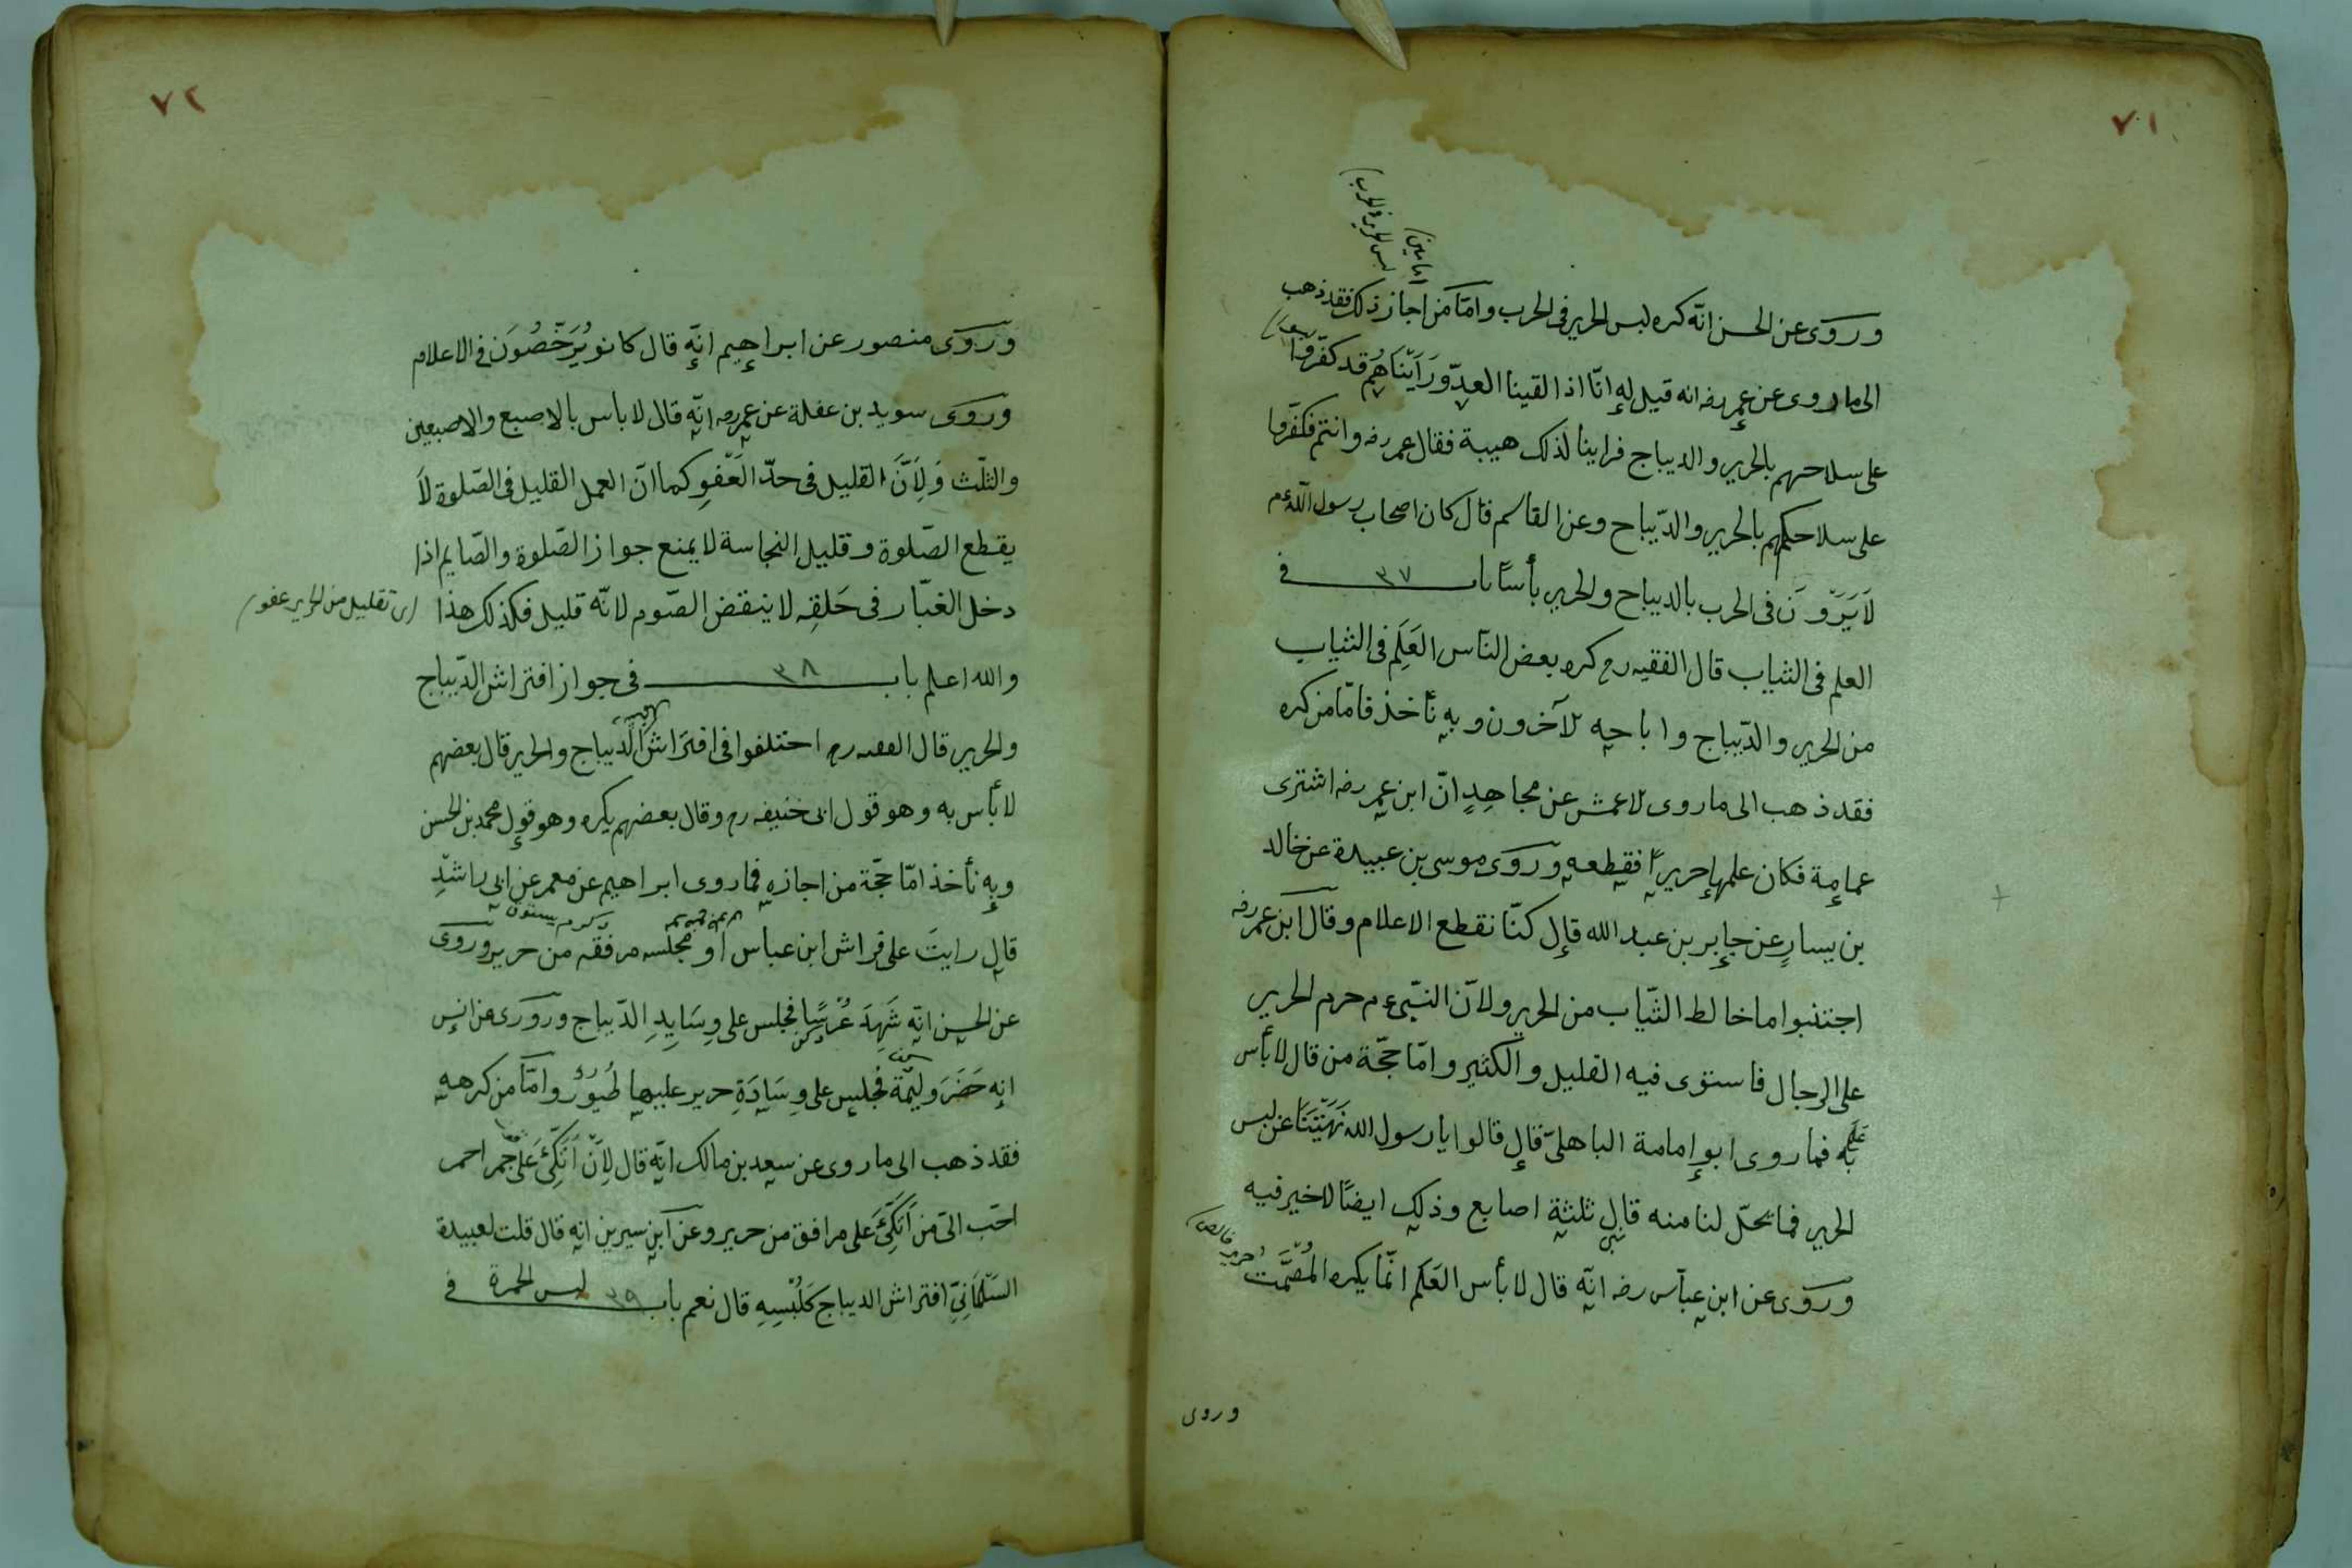 ٧١
وروى عن الحسن انّه كره لبس الحرير فى الحرب وامّا من اجاز ذلك فقد ذهب
الى ما روى عن عمر رضه انه قيل له انّا اذا لقينا العدوّ ورَاَيْنَاهُم قد كفّروا
على سلاحهم بالحرير والديباج فراينا لذلك هيبة فقال عمر رضه وانتم فكفّروا
على سلاحكم بالحرير والدّيباح وعن القاسم قال كان اصحاب رسول الله عم
لَا يَرَوْنَ فى الحرب بالديباح والحرير بأسًا باب ٣٧ فى
العلم فى الثياب قال الفقيه رح كره بعض النّاس العَلَم فى الثياب
من الحرير والدّيباج واباحه الآخرون وبه نأخذ فامّا من كره
فقد ذهب الى ما روى الاعمش عن مجاهدٍ انّ ابن عمر رضه اشترى
عمامة فكان علمها حريرًا فقطعه وروى موسى بن عبيدة عن خالد
بن يسارٍ عن جابر بن عبد الله قال كنّا نقطع الاعلام وقال ابن عمر رضه
اجتنبوا ما خالط الثّياب من الحرير ولانّ النّبى عم حرم الحرير
على الرجال فاستوى فيه القليل والكثير وامّا حجّة من قال لا بأس
به فما روى ابو امامة الباهلىّ قال قالوا يا رسول الله نَهَيْتَنَا عن لبس
الحرير فما يحلّ لنا منه قال ثلثة اصابع وذلك ايضًا لا خير فيه
وروى عن ابن عبّاس رضه انّه قال لا بأس العَلَم انّما يكره المُصْمَت
وروى
٧٢
وروى منصور عن ابراهيم انّه قال كانو يُرَخّصُونَ فى الاعلام
وروى سويد بن عفلة عن عمر رضه انّه قال لا باس بالاصبع والاصبعين
والثلث وَلِاَنَّ القليل فى حدّ العَفْوِ كما انّ العمل القليل فى الصّلوة لَا
يقطع الصّلوة وقليل النجاسة لا يمنع جواز الصّلوة والصّايم اذا
دخل الغبّار فى حَلقِه لا ينقض الصّوم لانّه قليل فكذلك هذا
اى تقليل من الحرير عفو
والله اعلم باب ٣٨ فى جواز افتراش الدّيباج
والحرير قال الفقيه رح اختلفوا فى افتراش الدّيباج والحرير قال بعضهم
لا بأس به وهو قول ابى حنيفه رح وقال بعضهم يكره وهو قول محمد بن الحسن
وبه نأخذ امّا حجّة من اجازه فما روى ابراهيم عن معمر عن ابى راشدِ
قال رايتَ على فراش ابن عباس او مجلسه مرفقه من حرير وروى
عن الحسن انّه شَهِدَ عُرْسًا فجلس على وِسَايِدِ الدّيباج وروى عن انس
انه حَضَرَ وليمَة فجلس على وِسَادَةِ حرير عليها طُيُورٌ وامّا من كرهه
فقد ذهب الى ما روى عن سعد بن مالك انّه قال لاَنْ اَتّكِئَ عَلى جمر احمر
احّب الىّ من اَتّكِئَ على مرافق من حرير وعن ابن سيرين انه قال قلت لعبيدة
السّلْمَانِىِّ افتراش الديباج كَلُبْسِهِ قال نعم باب ٣٩ لبس الحمرة فى